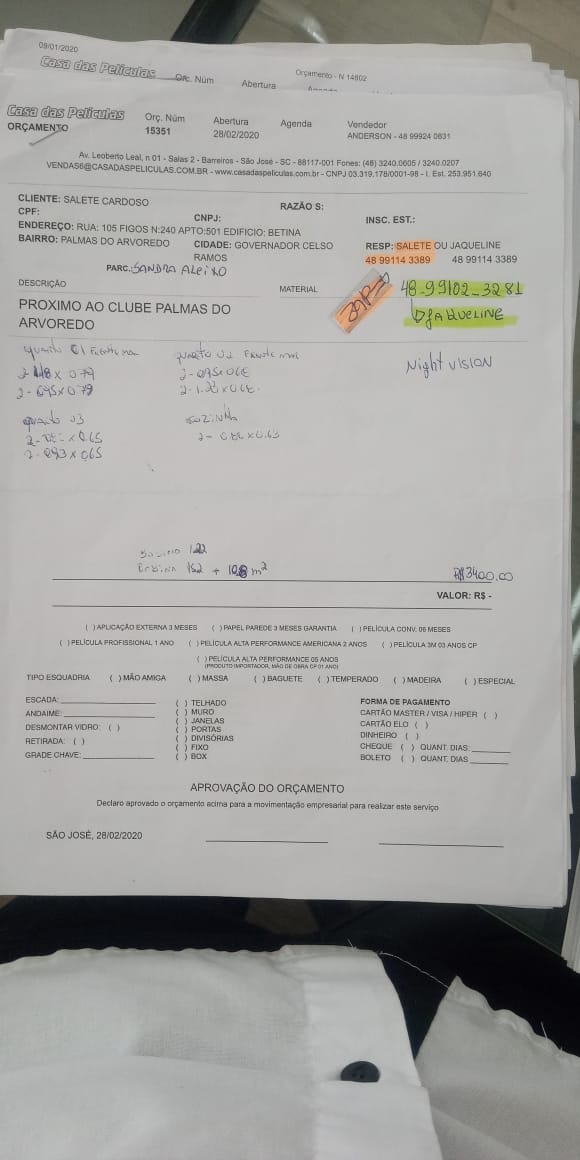 09/01/2020
Casa das Películas Orç. Núm Abertura Orçamento - N 14802
Casa das Películas Orç. Núm Abertura Agenda Vendedor
ORÇAMENTO 15351 28/02/2020 ANDERSON - 48 99924 0631
Av. Leoberto Leal, n 01 - Salas 2 - Barreiros - São José - SC - 88117-001 Fones: (48) 3240.0605 / 3240.0207
VENDAS6@CASADASPELICULAS.COM.BR - www.casadaspeliculas.com.br - CNPJ 03.319.178/0001-98 - I. Est. 253.951.640
CLIENTE: SALETE CARDOSO RAZÃO S:
CPF: CNPJ: INSC. EST.:
ENDEREÇO: RUA: 105 FIGOS N:240 APTO:501 EDIFICIO: BETINA
BAIRRO: PALMAS DO ARVOREDO CIDADE: GOVERNADOR CELSO RESP: SALETE OU JAQUELINE
RAMOS 48 99114 3389 48 99114 3389
PARC.: SANDRA ALEIXO
DESCRIÇÃO MATERIAL ZAP 48-99102-3281
PROXIMO AO CLUBE PALMAS DO DJAQUELINE
ARVOREDO
quarto 01 Frente mar quarto 02 Frente mar Night vision
2- 0,95x0,79
quarto 03 cozinha
2- 0,93 x 0,65
Bobina 1,22
Bobina 1,52 + 10,8 m²
R$3400,00
VALOR: R$ -
( ) APLICAÇÃO EXTERNA 3 MESES ( ) PAPEL PAREDE 3 MESES GARANTIA ( ) PELÍCULA CONV: 06 MESES
( ) PELÍCULA PROFISSIONAL 1 ANO ( ) PELÍCULA ALTA PERFORMANCE AMERICANA 2 ANOS ( ) PELÍCULA 3M 03 ANOS CP
( ) PELÍCULA ALTA PERFORMANCE 05 ANOS
(PRODUTO IMPORTADOR, MÃO DE OBRA CP 01 ANO)
TIPO ESQUADRIA ( ) MÃO AMIGA ( ) MASSA ( ) BAGUETE ( ) TEMPERADO ( ) MADEIRA ( ) ESPECIAL
ESCADA: ( ) TELHADO FORMA DE PAGAMENTO
ANDAIME: ( ) MURO CARTÃO MASTER / VISA / HIPER ( )
DESMONTAR VIDRO: ( ) ( ) JANELAS CARTÃO ELO ( )
RETIRADA: ( ) ( ) PORTAS DINHEIRO ( )
GRADE CHAVE: ( ) DIVISÓRIAS CHEQUE ( ) QUANT. DIAS:
( ) FIXO BOLETO ( ) QUANT. DIAS
( ) BOX
APROVAÇÃO DO ORÇAMENTO
Declaro aprovado o orçamento acima para a movimentação empresarial para realizar este serviço
SÃO JOSÉ, 28/02/2020